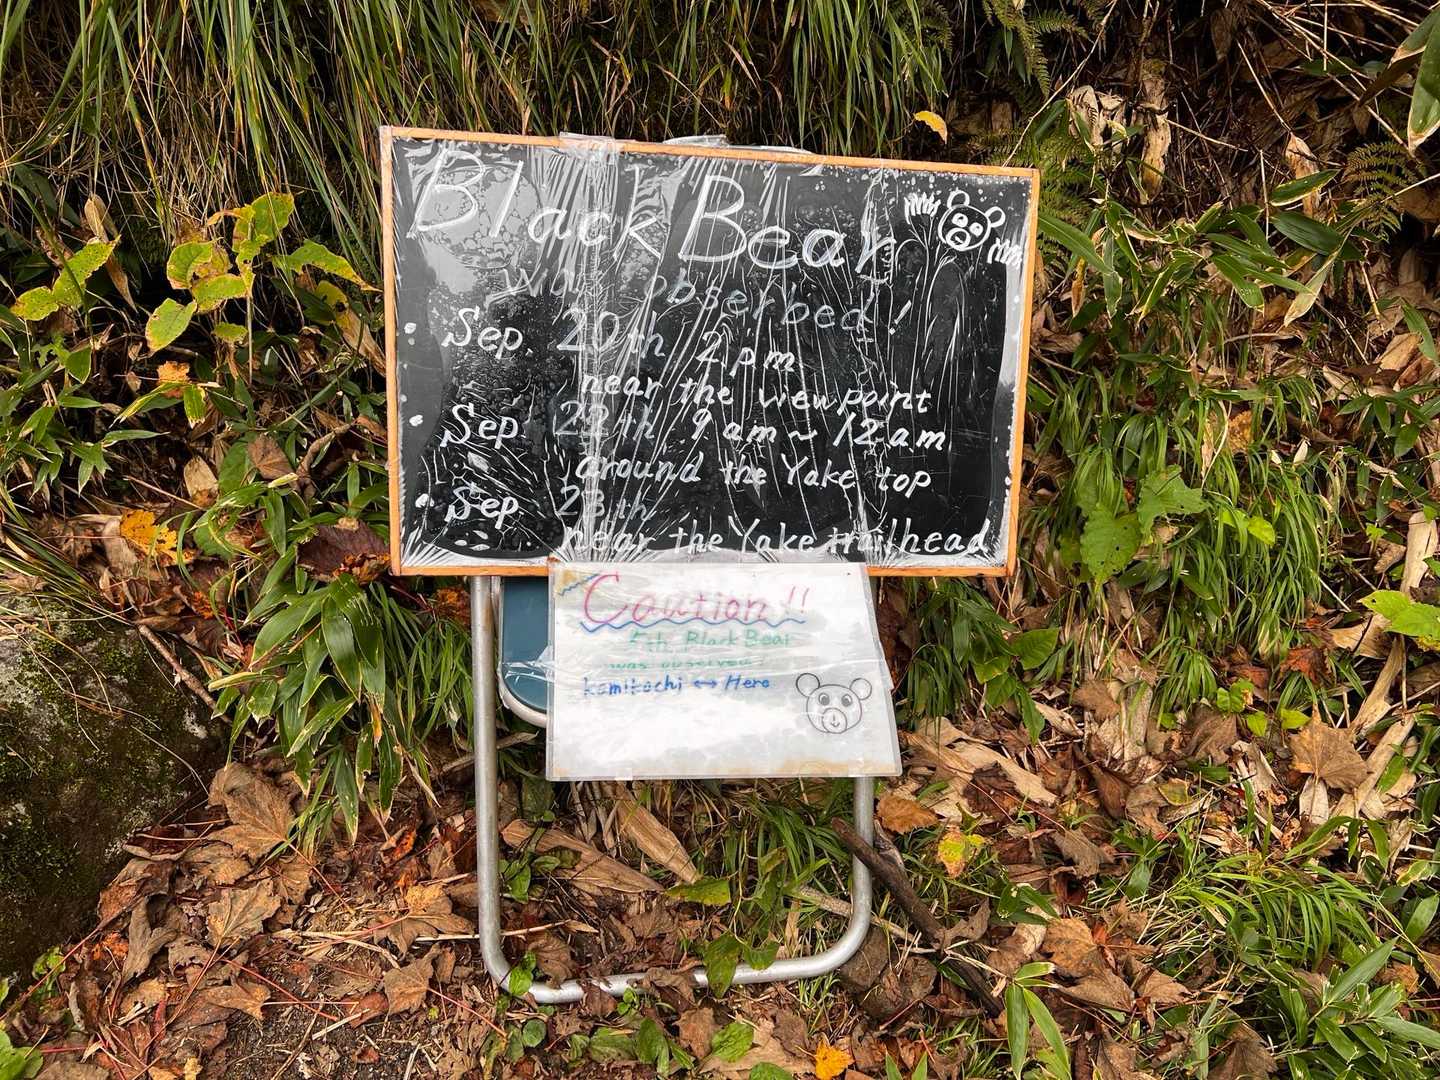 Black Bear
was obserbed!
Sep. 20th 2pm
near the viewpoint
Sep 22th 9am~12am
around the Yake top
Sep 23th
near the Yake trailhead
Caution!!
5th Black Bear
was observed
kamikochi ↔ Here